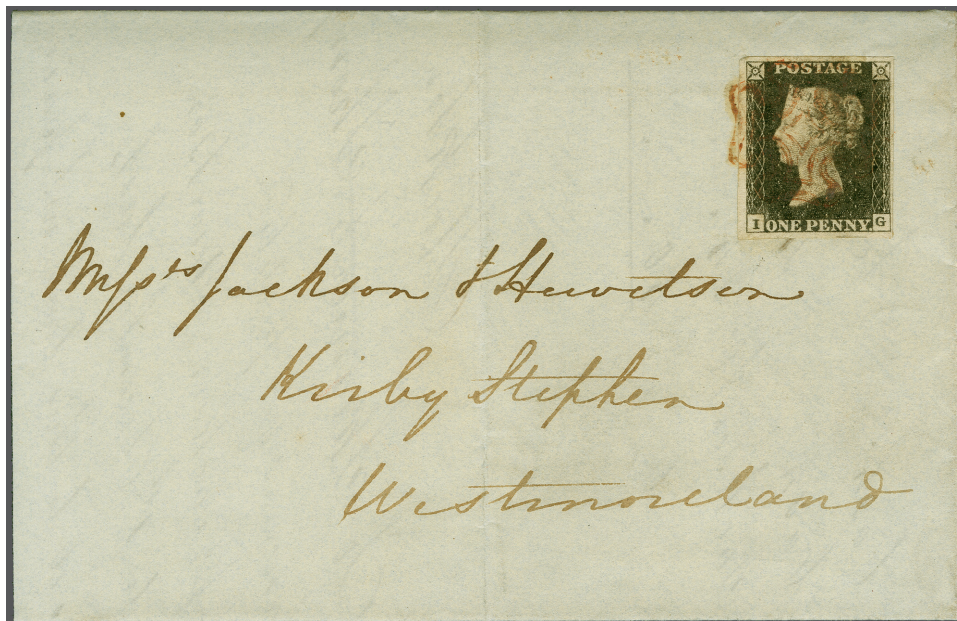 POSTAGE
I ONE PENNY. G
Mess^rs Jackson & Hewetson
Kirby Stephen
Westmoreland